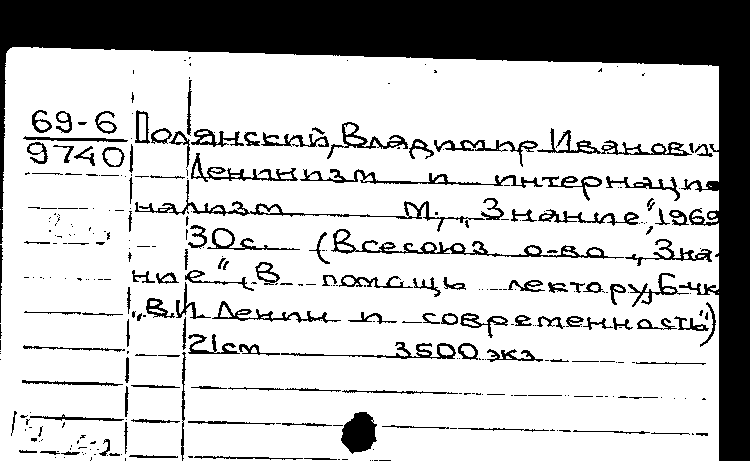 69-6
9740
Полянский, Владимир Иванович
Ленинизм и интернацио
нализм М., „Знание“, 1969
30с. (Всесоюз. о-во „Зна-
ние“, В помощь лектору, Б-чк
„В.И. Ленин и современность“)
21см 3500 экз